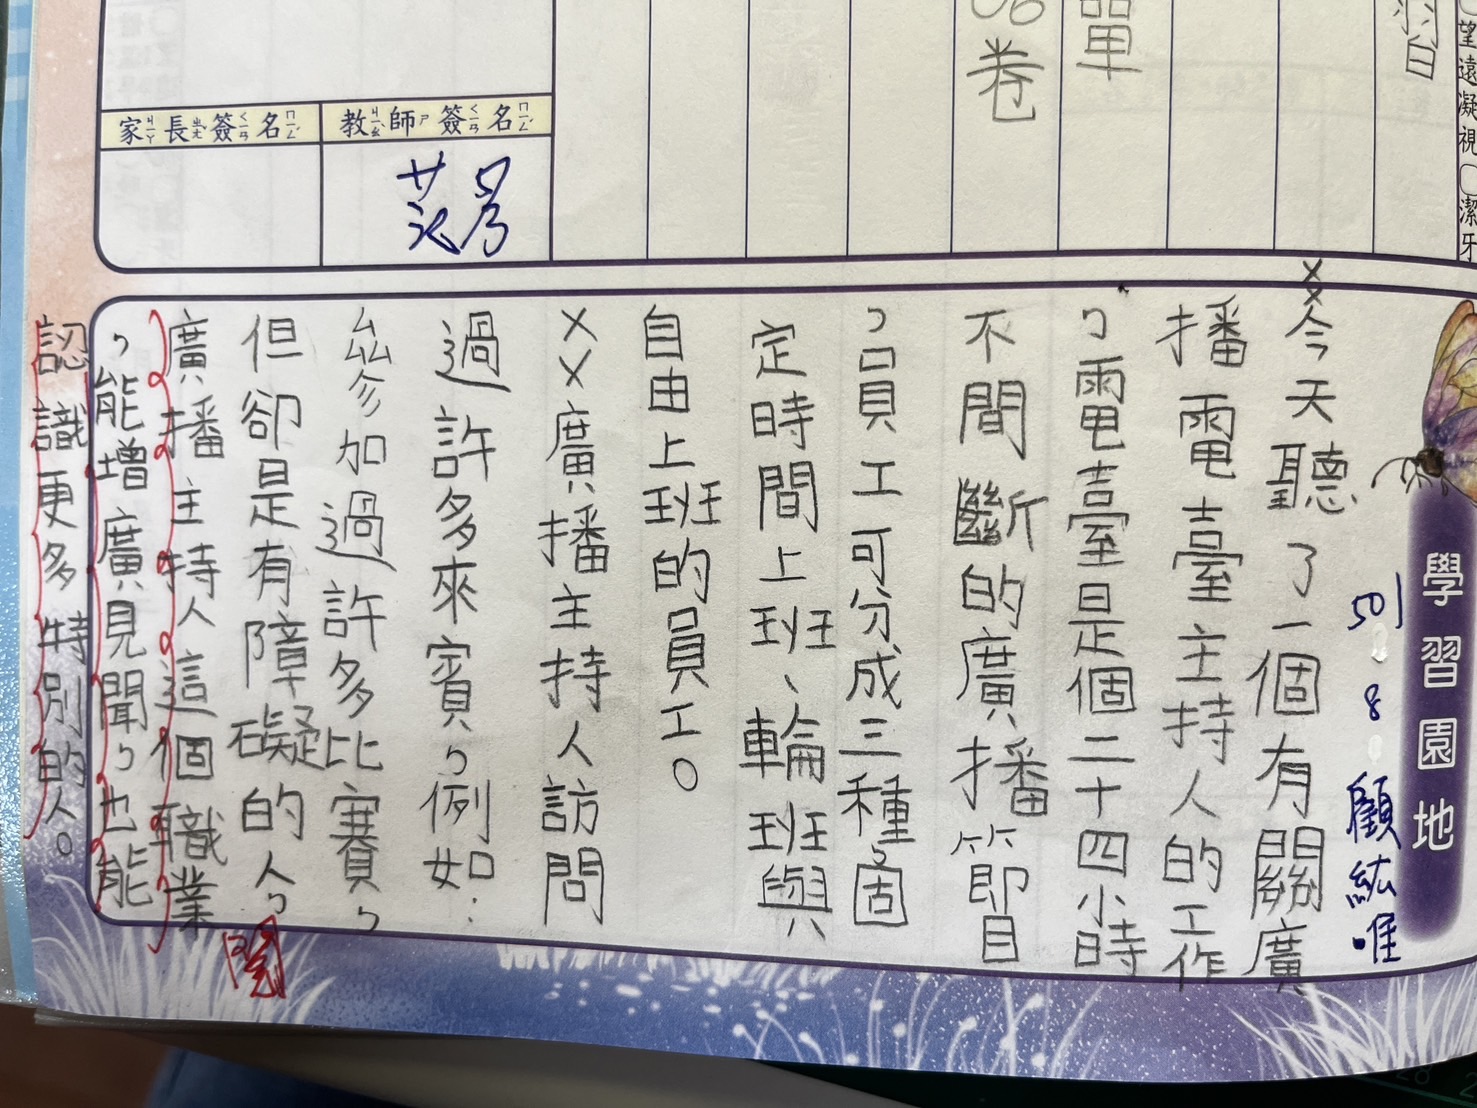 習
單
卷
望遠凝視
潔牙
教師簽名
家長簽名
學習園地
501 8 顧紘唯
××今天聽了一個有關廣
播電臺主持人的工作
，電臺是個二十四小時
不間斷的廣播節目
，員工可分成三種，固
定時間上班、輪班與
自由上班的員工。
××廣播主持人訪問
過許多來賓，例如：
參加過許多比賽，
但卻是有障礙的人，
廣播主持人這個職業
，能增廣見聞，也能
認識更多特別的人。
閱